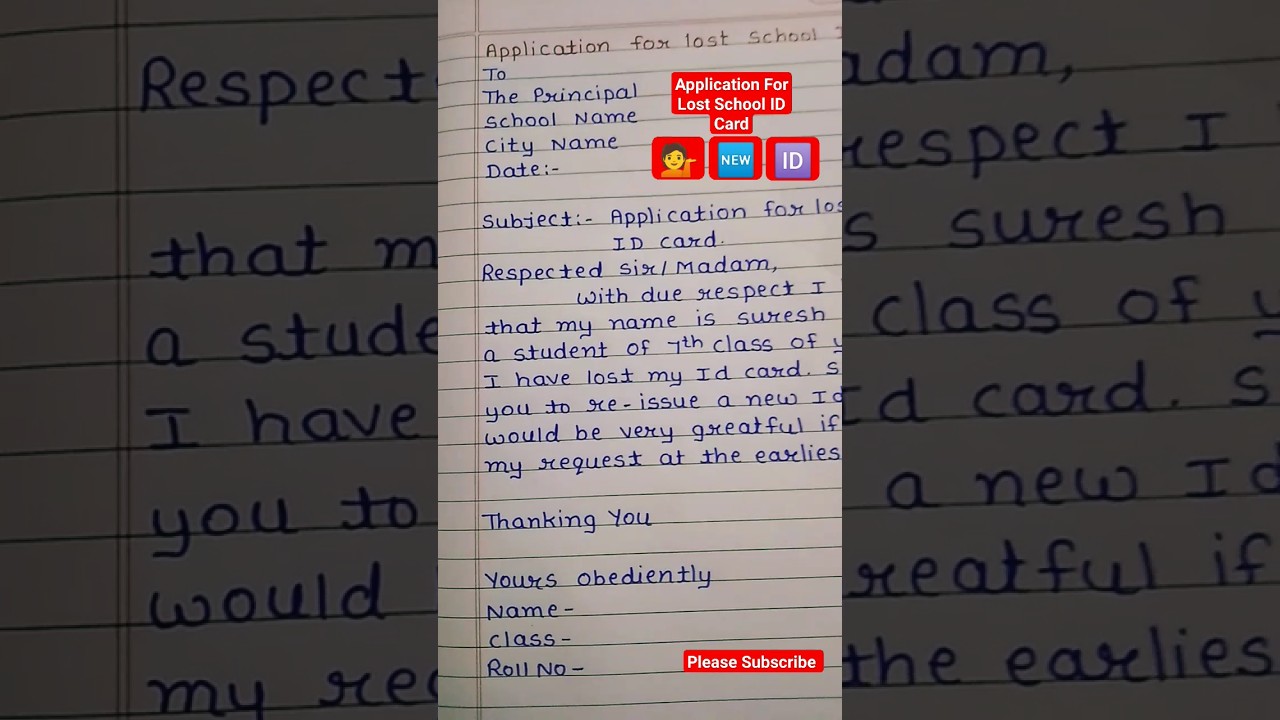 Application for lost School I
To
The Principal
School Name
City Name
Date:-
Application For
Lost School ID
Card
NEW
ID
Subject:- Application for los
ID card.
Respected Sir/Madam,
with due respect I
that my name is suresh
a student of 7th class of y
I have lost my Id card. S
you to re-issue a new Id
would be very greatful if
my request at the earlies
Thanking You
Yours obediently
Name-
Class-
Roll No-
Please Subscribe